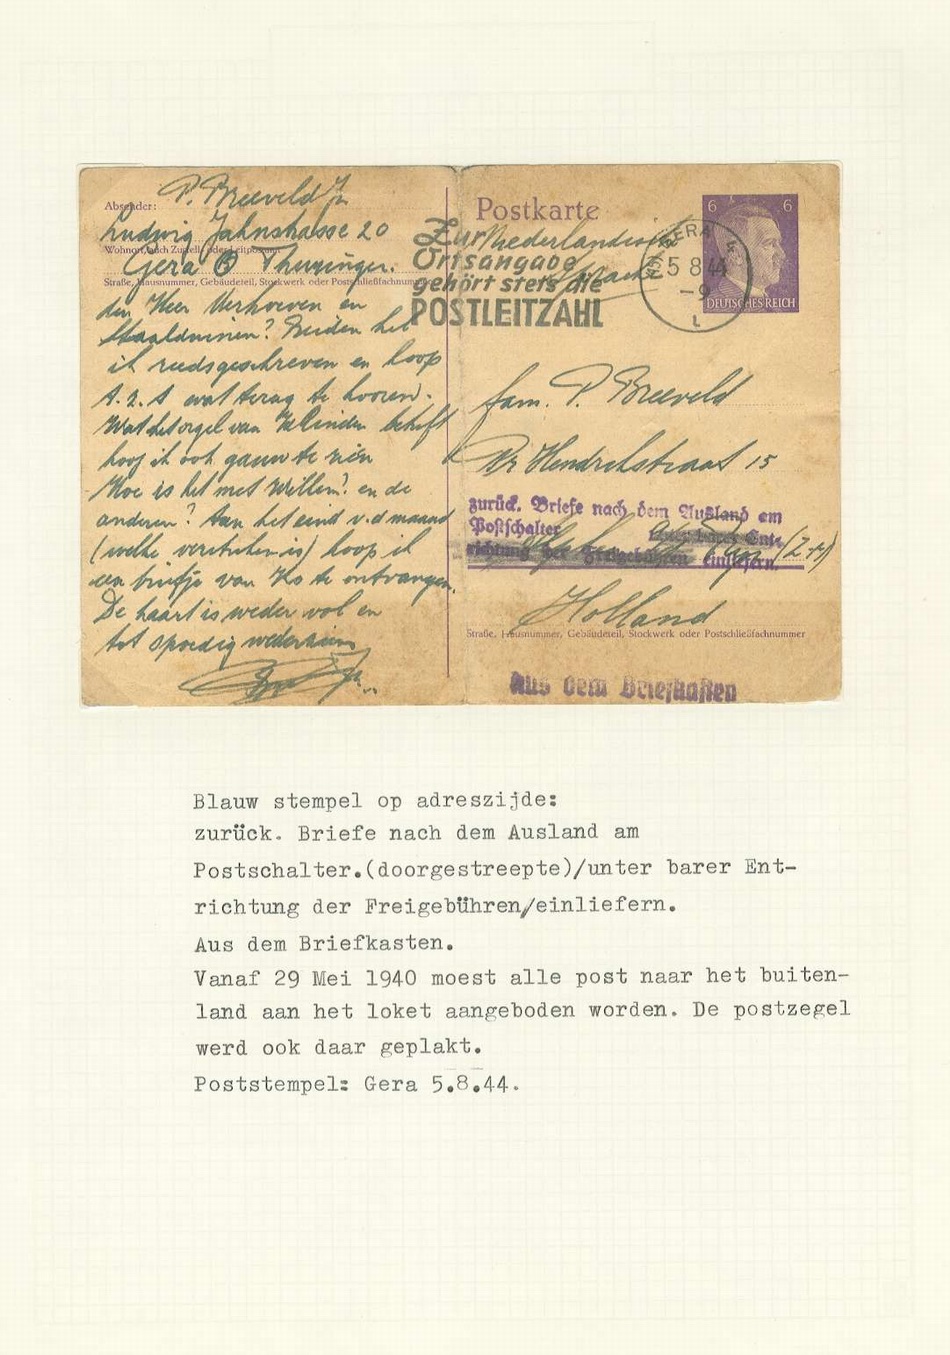 Absender:
P. Breeveld Jr
Ludwig Jahnstrasse 20
Wohnort, auch Zustell- oder Leitpostamt
Gera Thuringen.
Straße, Hausnummer, Gebäudeteil, Stockwerk oder Postschließfachnummer
den Heer Verhoeven en
Staalduinen? Beiden heb
ik reeds geschreven en hoop
t.z.t wat terug te hooren.
Wat het orgel van betreft
hoop ik ook gauw te zien
Hoe is het met Willem? en de
anderen? Aan het eind v.d maand
(welke verstreken is) hoop ik
een briefje van Ko te ontvangen.
De kaart is weder vol en
tot spoedig wederzien
Postkarte
6 6
DEUTSCHES REICH
Nederlandisch
Zur
Ortsangabe
gehört stets die
POSTLEITZAHL
GERA
5 8 44
-9
L
fam. P. Breeveld
Pr Hendrikstraat 15
zurück. Briefe nach dem Ausland am
Postschalter unter barer Ent-
richtung der Freigebühren einliefern.
(Z.H)
Holland
Straße, Hausnummer, Gebäudeteil, Stockwerk oder Postschließfachnummer
Aus dem Briefkasten
Blauw stempel op adreszijde:
zurück. Briefe nach dem Ausland am
Postschalter.(doorgestreepte)/unter barer Ent-
richtung der Freigebühren/einliefern.
Aus dem Briefkasten.
Vanaf 29 Mei 1940 moest alle post naar het buiten-
land aan het loket aangeboden worden. De postzegel
werd ook daar geplakt.
Poststempel: Gera 5.8.44.